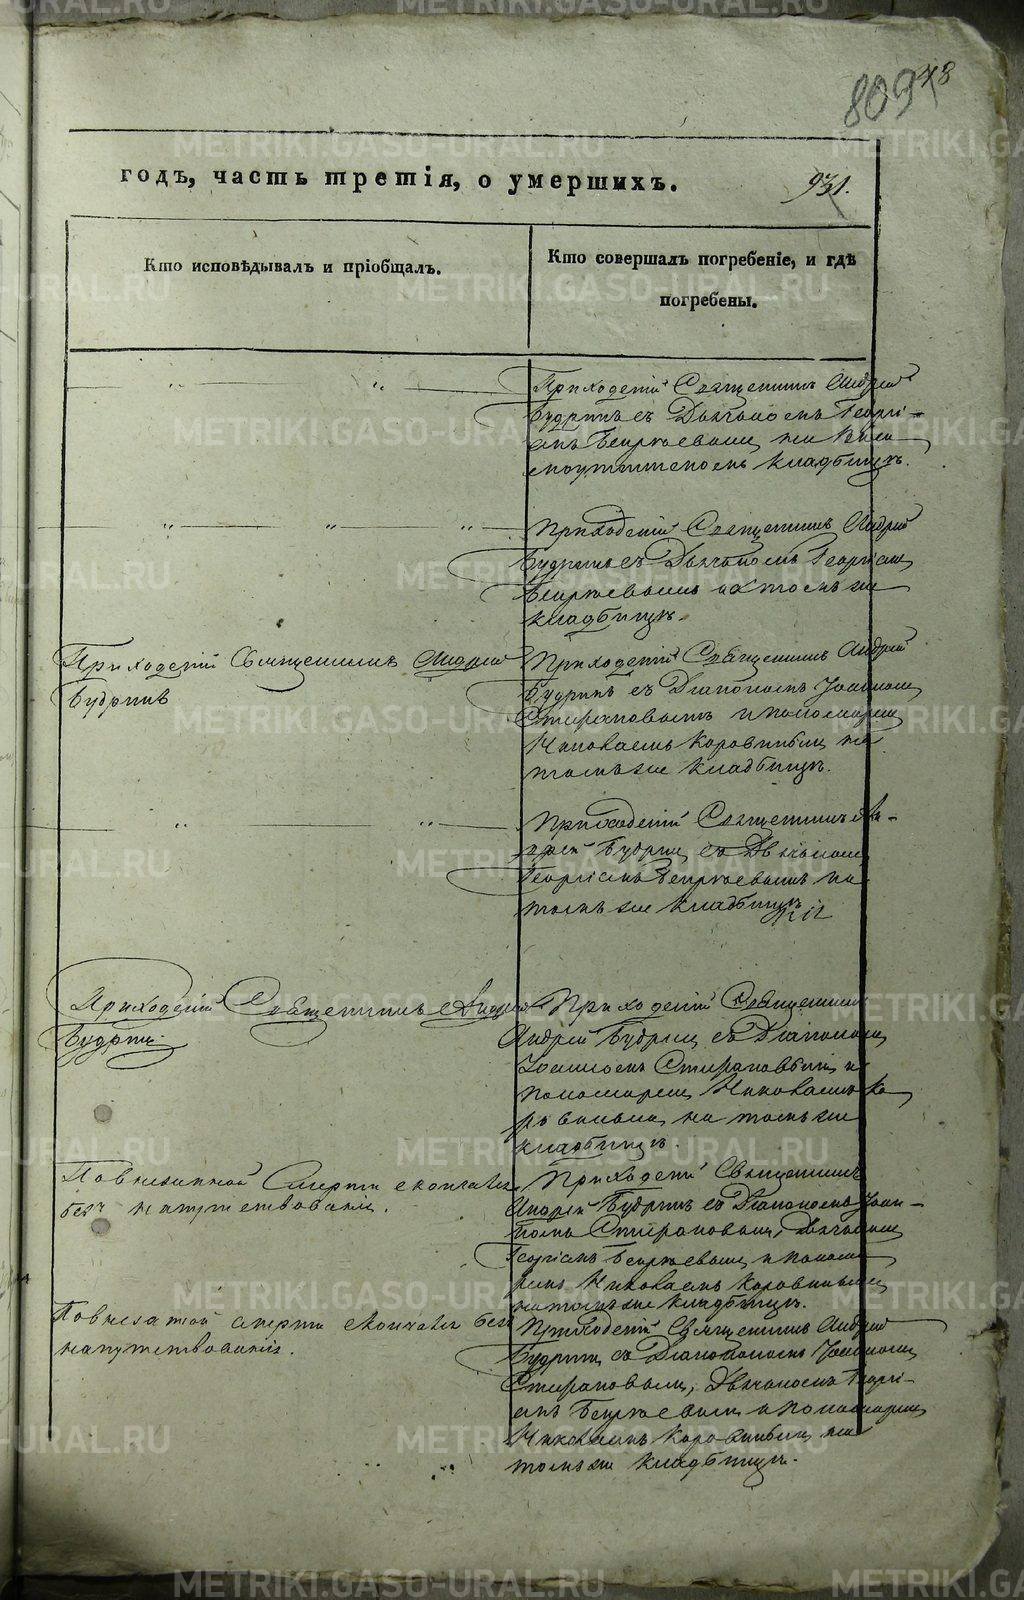 809
78
годъ, часть третія, о умершихъ.
931.
Кто исповѣдывалъ и пріобщалъ.
Кто совершалъ погребеніе, и гдѣ
погребены.
Приходскій Священникъ Андрей
Будринъ съ Дьячкомъ Георгі-
емъ на
кладбищѣ.
Приходскій Священникъ Андрей
Будринъ съ Дьячкомъ Георгіемъ
на томъ же
кладбищѣ.
Приходскій Священникъ Андрей
Будринъ
Приходскій Священникъ Андрей
Будринъ съ Діакономъ Іоанномъ
Стефановымъ и пономаремъ
Николаемъ Коровинымъ на
томъ же кладбищѣ.
Приходскій Священникъ Ан-
дрей Будринъ съ Дьячкомъ
Георгіемъ на
томъ же кладбищѣ
Приходскій Священникъ Андрей
Будринъ
Приходскій Священникъ
Андрей Будринъ съ Діакономъ
Іоанномъ Стефановымъ и
пономаремъ Николаемъ Ко-
ровинымъ на томъ же
кладбищѣ.
По внезапной смерти скончался
безъ напутствованія.
Приходскій Священникъ
Андрей Будринъ съ Діакономъ Іоан-
номъ Стефановымъ, Дьячкомъ
Георгіемъ и понома-
ремъ Николаемъ Коровинымъ
на томъ же кладбищѣ.
По внезапной смерти скончался безъ
напутствованія.
Приходскій Священникъ Андрей
Будринъ съ Діакономъ Іоанномъ
Стефановымъ, Дьячкомъ Георгі-
емъ и пономаремъ
Николаемъ Коровинымъ на
томъ же кладбищѣ.
METRIKI.GASO-URAL.RU